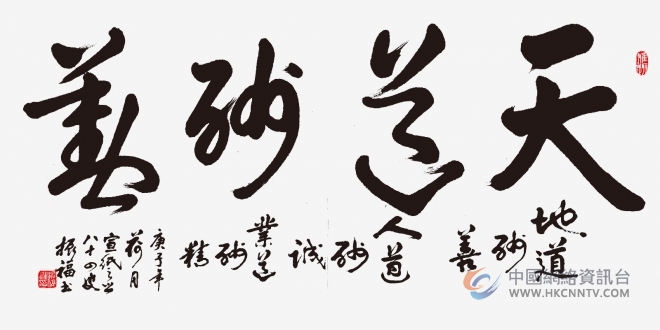 天道酬勤
地道酬善
人道酬誠
業道酬精
庚子年
荷月
八十四叟
振福书
中國網絡資訊台
WWW.HKCNNTV.COM